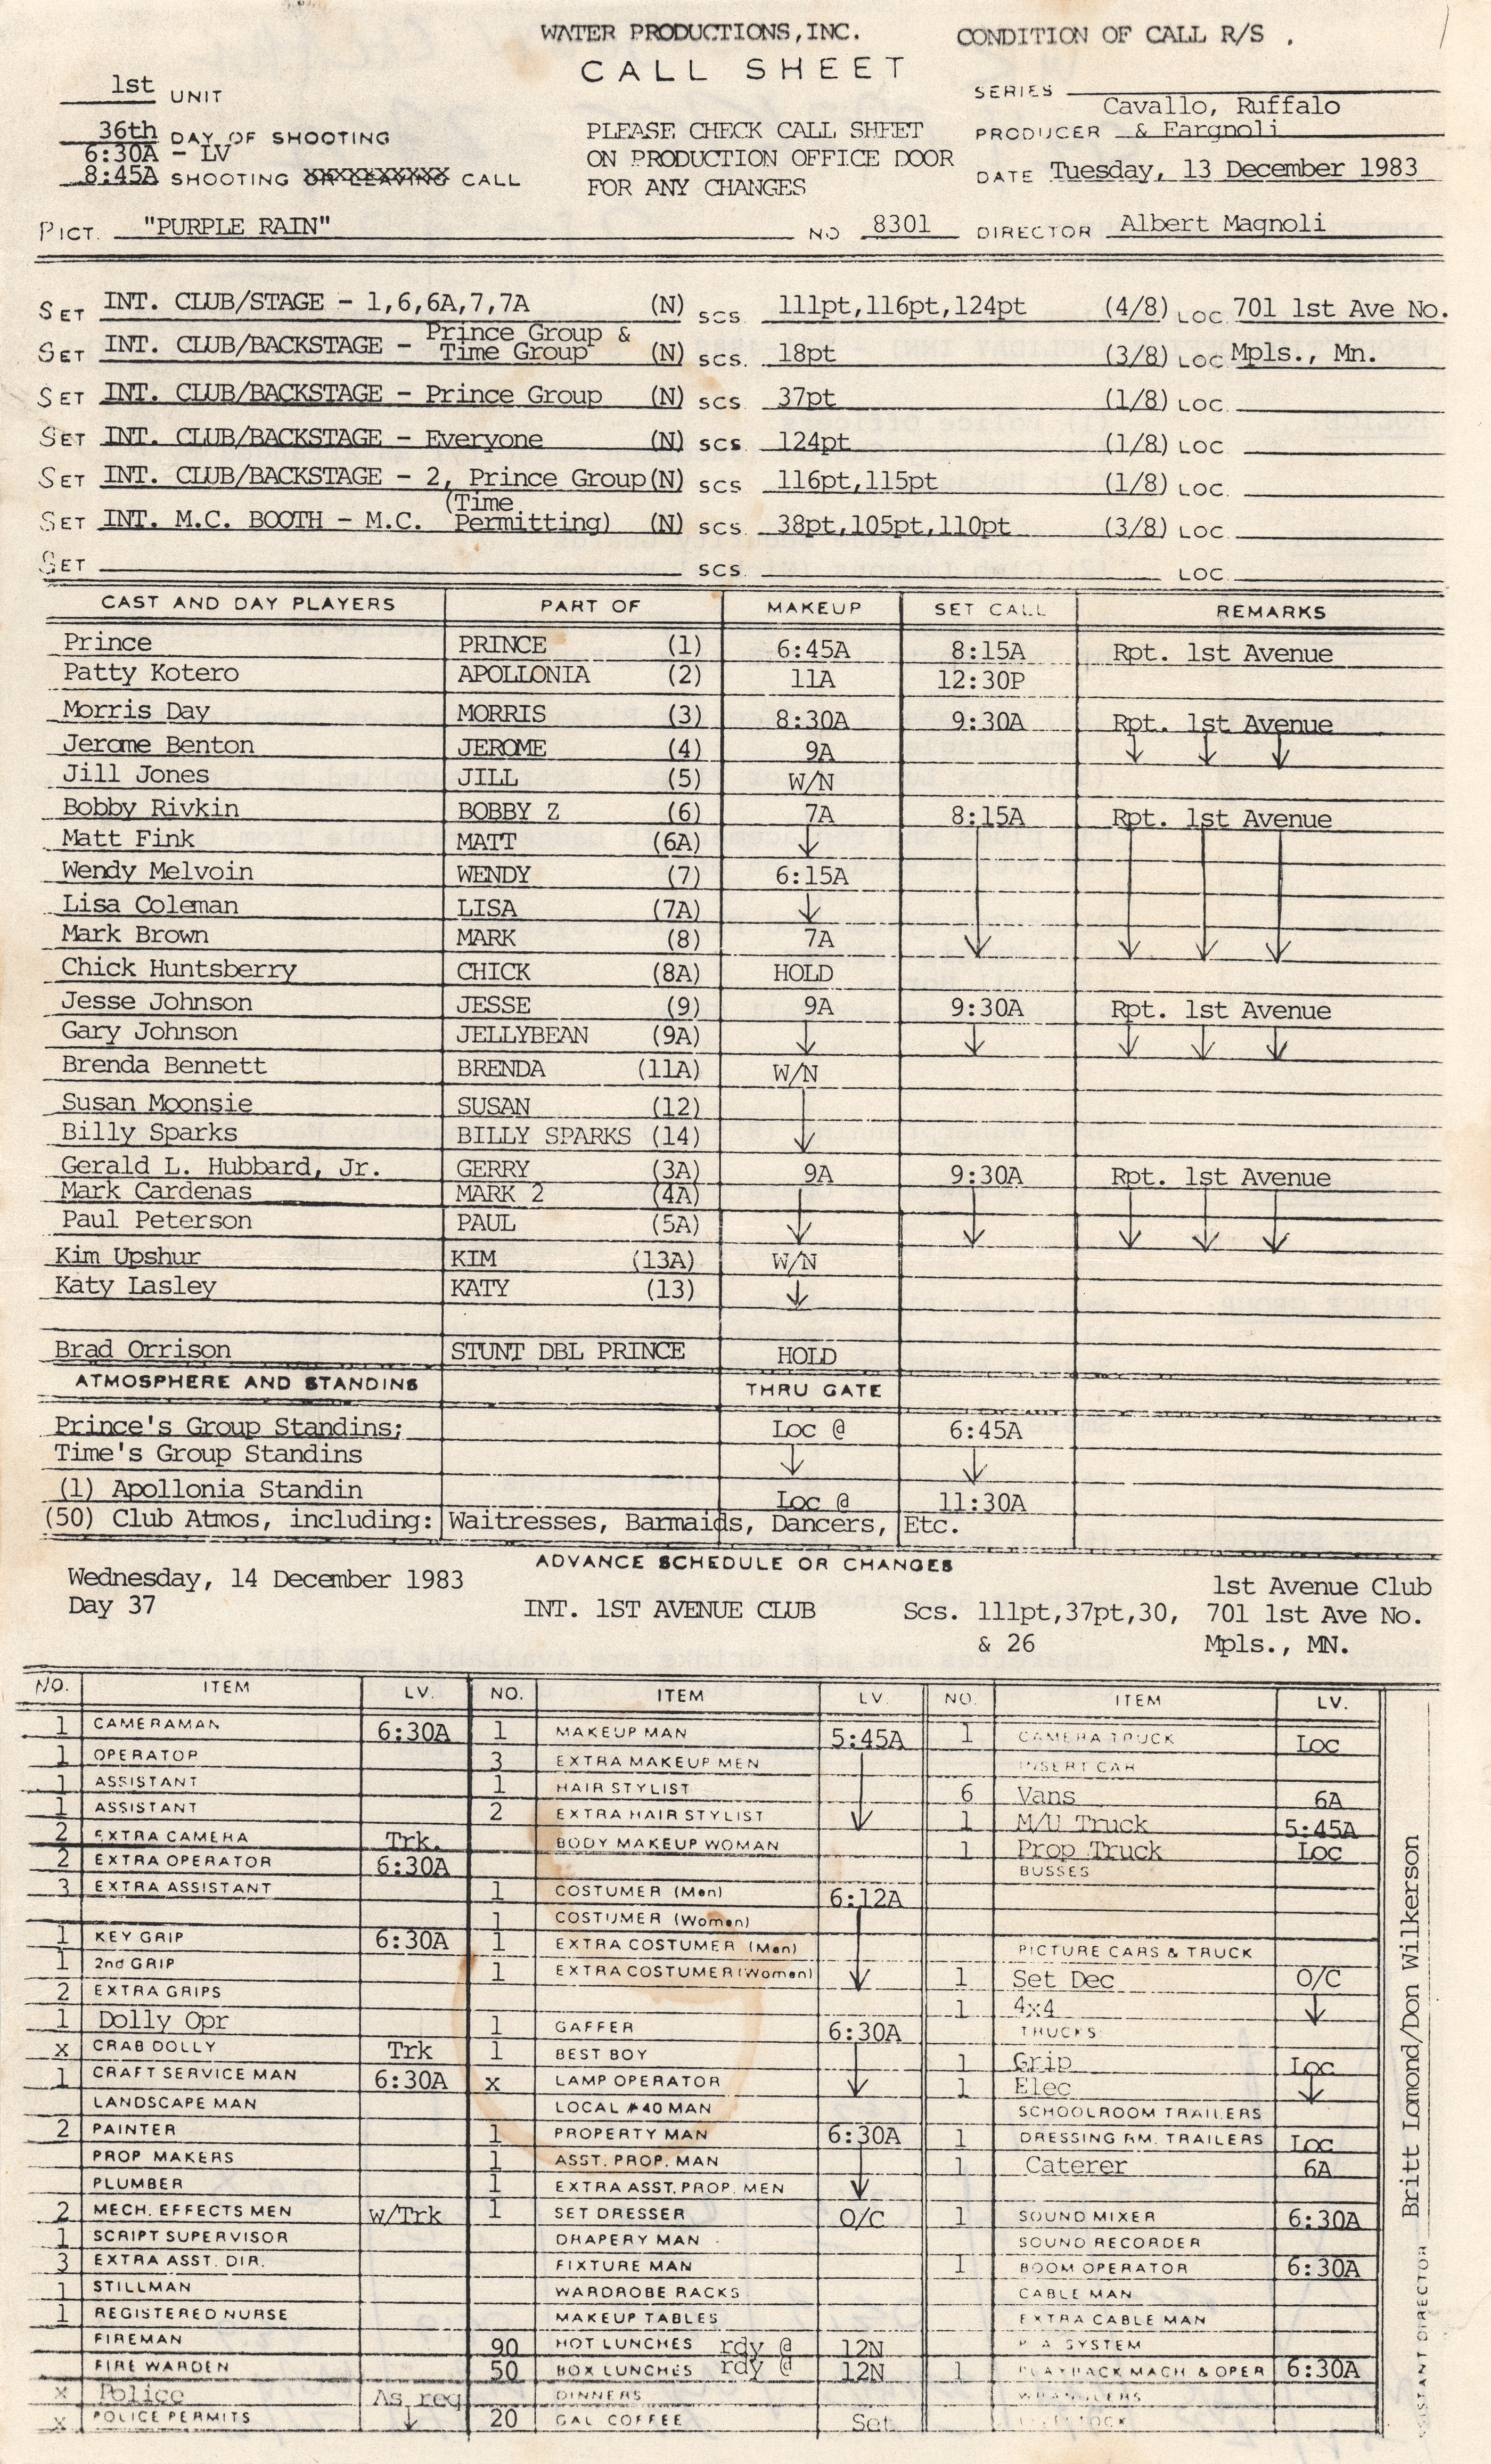 WATER PRODUCTIONS, INC. CONDITION OF CALL R/S .
CALL SHEET
1st UNIT
SERIES
36th DAY OF SHOOTING
6:30A - LV
8:45A SHOOTING OR LEAVING CALL
PLEASE CHECK CALL SHEET
ON PRODUCTION OFFICE DOOR
FOR ANY CHANGES
Cavallo, Ruffalo
PRODUCER & Fargnoli
DATE Tuesday, 13 December 1983
PICT. "PURPLE RAIN" NO 8301 DIRECTOR Albert Magnoli
SET INT. CLUB/STAGE - 1,6,6A,7,7A (N) SCS. 111pt,116pt,124pt (4/8) LOC 701 1st Ave No.
SET INT. CLUB/BACKSTAGE - Prince Group & Time Group (N) SCS. 18pt (3/8) LOC Mpls., Mn.
SET INT. CLUB/BACKSTAGE - Prince Group (N) SCS 37pt (1/8) LOC.
SET INT. CLUB/BACKSTAGE - Everyone (N) SCS 124pt (1/8) LOC
SET INT. CLUB/BACKSTAGE - 2, Prince Group (N) SCS 116pt,115pt (1/8) LOC.
SET INT. M.C. BOOTH - M.C. (Time Permitting) (N) SCS. 38pt,105pt,110pt (3/8) LOC.
SET SCS. LOC.
CAST AND DAY PLAYERS PART OF MAKEUP SET CALL REMARKS
Prince PRINCE (1) 6:45A 8:15A Rpt. 1st Avenue
Patty Kotero APOLLONIA (2) 11A 12:30P
Morris Day MORRIS (3) 8:30A 9:30A Rpt. 1st Avenue
Jerome Benton JEROME (4) 9A ↓ ↓ ↓
Jill Jones JILL (5) W/N
Bobby Rivkin BOBBY Z (6) 7A 8:15A Rpt. 1st Avenue
Matt Fink MATT (6A) ↓
Wendy Melvoin WENDY (7) 6:15A
Lisa Coleman LISA (7A) ↓
Mark Brown MARK (8) 7A ↓ ↓ ↓ ↓
Chick Huntsberry CHICK (8A) HOLD
Jesse Johnson JESSE (9) 9A 9:30A Rpt. 1st Avenue
Gary Johnson JELLYBEAN (9A) ↓ ↓ ↓ ↓ ↓
Brenda Bennett BRENDA (11A) W/N
Susan Moonsie SUSAN (12)
Billy Sparks BILLY SPARKS (14) ↓
Gerald L. Hubbard, Jr. GERRY (3A) 9A 9:30A Rpt. 1st Avenue
Mark Cardenas MARK 2 (4A)
Paul Peterson PAUL (5A) ↓ ↓ ↓ ↓ ↓
Kim Upshur KIM (13A) W/N
Katy Lasley KATY (13) ↓
Brad Orrison STUNT DBL PRINCE HOLD
ATMOSPHERE AND STANDINS THRU GATE
Prince's Group Standins; Loc @ 6:45A
Time's Group Standins ↓ ↓
(1) Apollonia Standin Loc @ 11:30A
(50) Club Atmos, including: Waitresses, Barmaids, Dancers, Etc.
ADVANCE SCHEDULE OR CHANGES
Wednesday, 14 December 1983 1st Avenue Club
Day 37 INT. 1ST AVENUE CLUB Scs. 111pt,37pt,30, 701 1st Ave No.
& 26 Mpls., MN.
NO. ITEM LV. NO. ITEM LV. NO. ITEM LV.
1 CAMERAMAN 6:30A 1 MAKEUP MAN 5:45A 1 CAMERA TRUCK Loc
1 OPERATOR 3 EXTRA MAKEUP MEN INSERT CAR
1 ASSISTANT 1 HAIR STYLIST 6 Vans 6A
1 ASSISTANT 2 EXTRA HAIR STYLIST ↓ 1 M/U Truck 5:45A
2 EXTRA CAMERA Trk. BODY MAKEUP WOMAN 1 Prop Truck Loc
2 EXTRA OPERATOR 6:30A BUSSES
3 EXTRA ASSISTANT 1 COSTUMER (Men) 6:12A
1 COSTUMER (Women)
1 KEY GRIP 6:30A 1 EXTRA COSTUMER (Men) PICTURE CARS & TRUCK
1 2nd GRIP 1 EXTRA COSTUMER (Women) ↓ 1 Set Dec O/C
2 EXTRA GRIPS 1 4x4 ↓
1 Dolly Opr 1 GAFFER 6:30A TRUCKS
x CRAB DOLLY Trk 1 BEST BOY 1 Grip Loc
1 CRAFT SERVICE MAN 6:30A x LAMP OPERATOR ↓ 1 Elec ↓
LANDSCAPE MAN LOCAL #40 MAN SCHOOLROOM TRAILERS
2 PAINTER 1 PROPERTY MAN 6:30A 1 DRESSING RM. TRAILERS Loc
PROP MAKERS 1 ASST. PROP. MAN 1 Caterer 6A
PLUMBER 1 EXTRA ASST. PROP. MEN ↓
2 MECH. EFFECTS MEN w/Trk 1 SET DRESSER O/C 1 SOUND MIXER 6:30A
1 SCRIPT SUPERVISOR DRAPERY MAN SOUND RECORDER
3 EXTRA ASST. DIR. FIXTURE MAN 1 BOOM OPERATOR 6:30A
1 STILLMAN WARDROBE RACKS CABLE MAN
1 REGISTERED NURSE MAKEUP TABLES EXTRA CABLE MAN
FIREMAN 90 HOT LUNCHES rdy @ 12N P A SYSTEM
FIRE WARDEN 50 BOX LUNCHES rdy @ 12N 1 PLAYBACK MACH & OPER 6:30A
x Police As req DINNERS WRANGLERS
x POLICE PERMITS ↓ 20 GAL COFFEE Set
ASSISTANT DIRECTOR Britt Lomond/Don Wilkerson